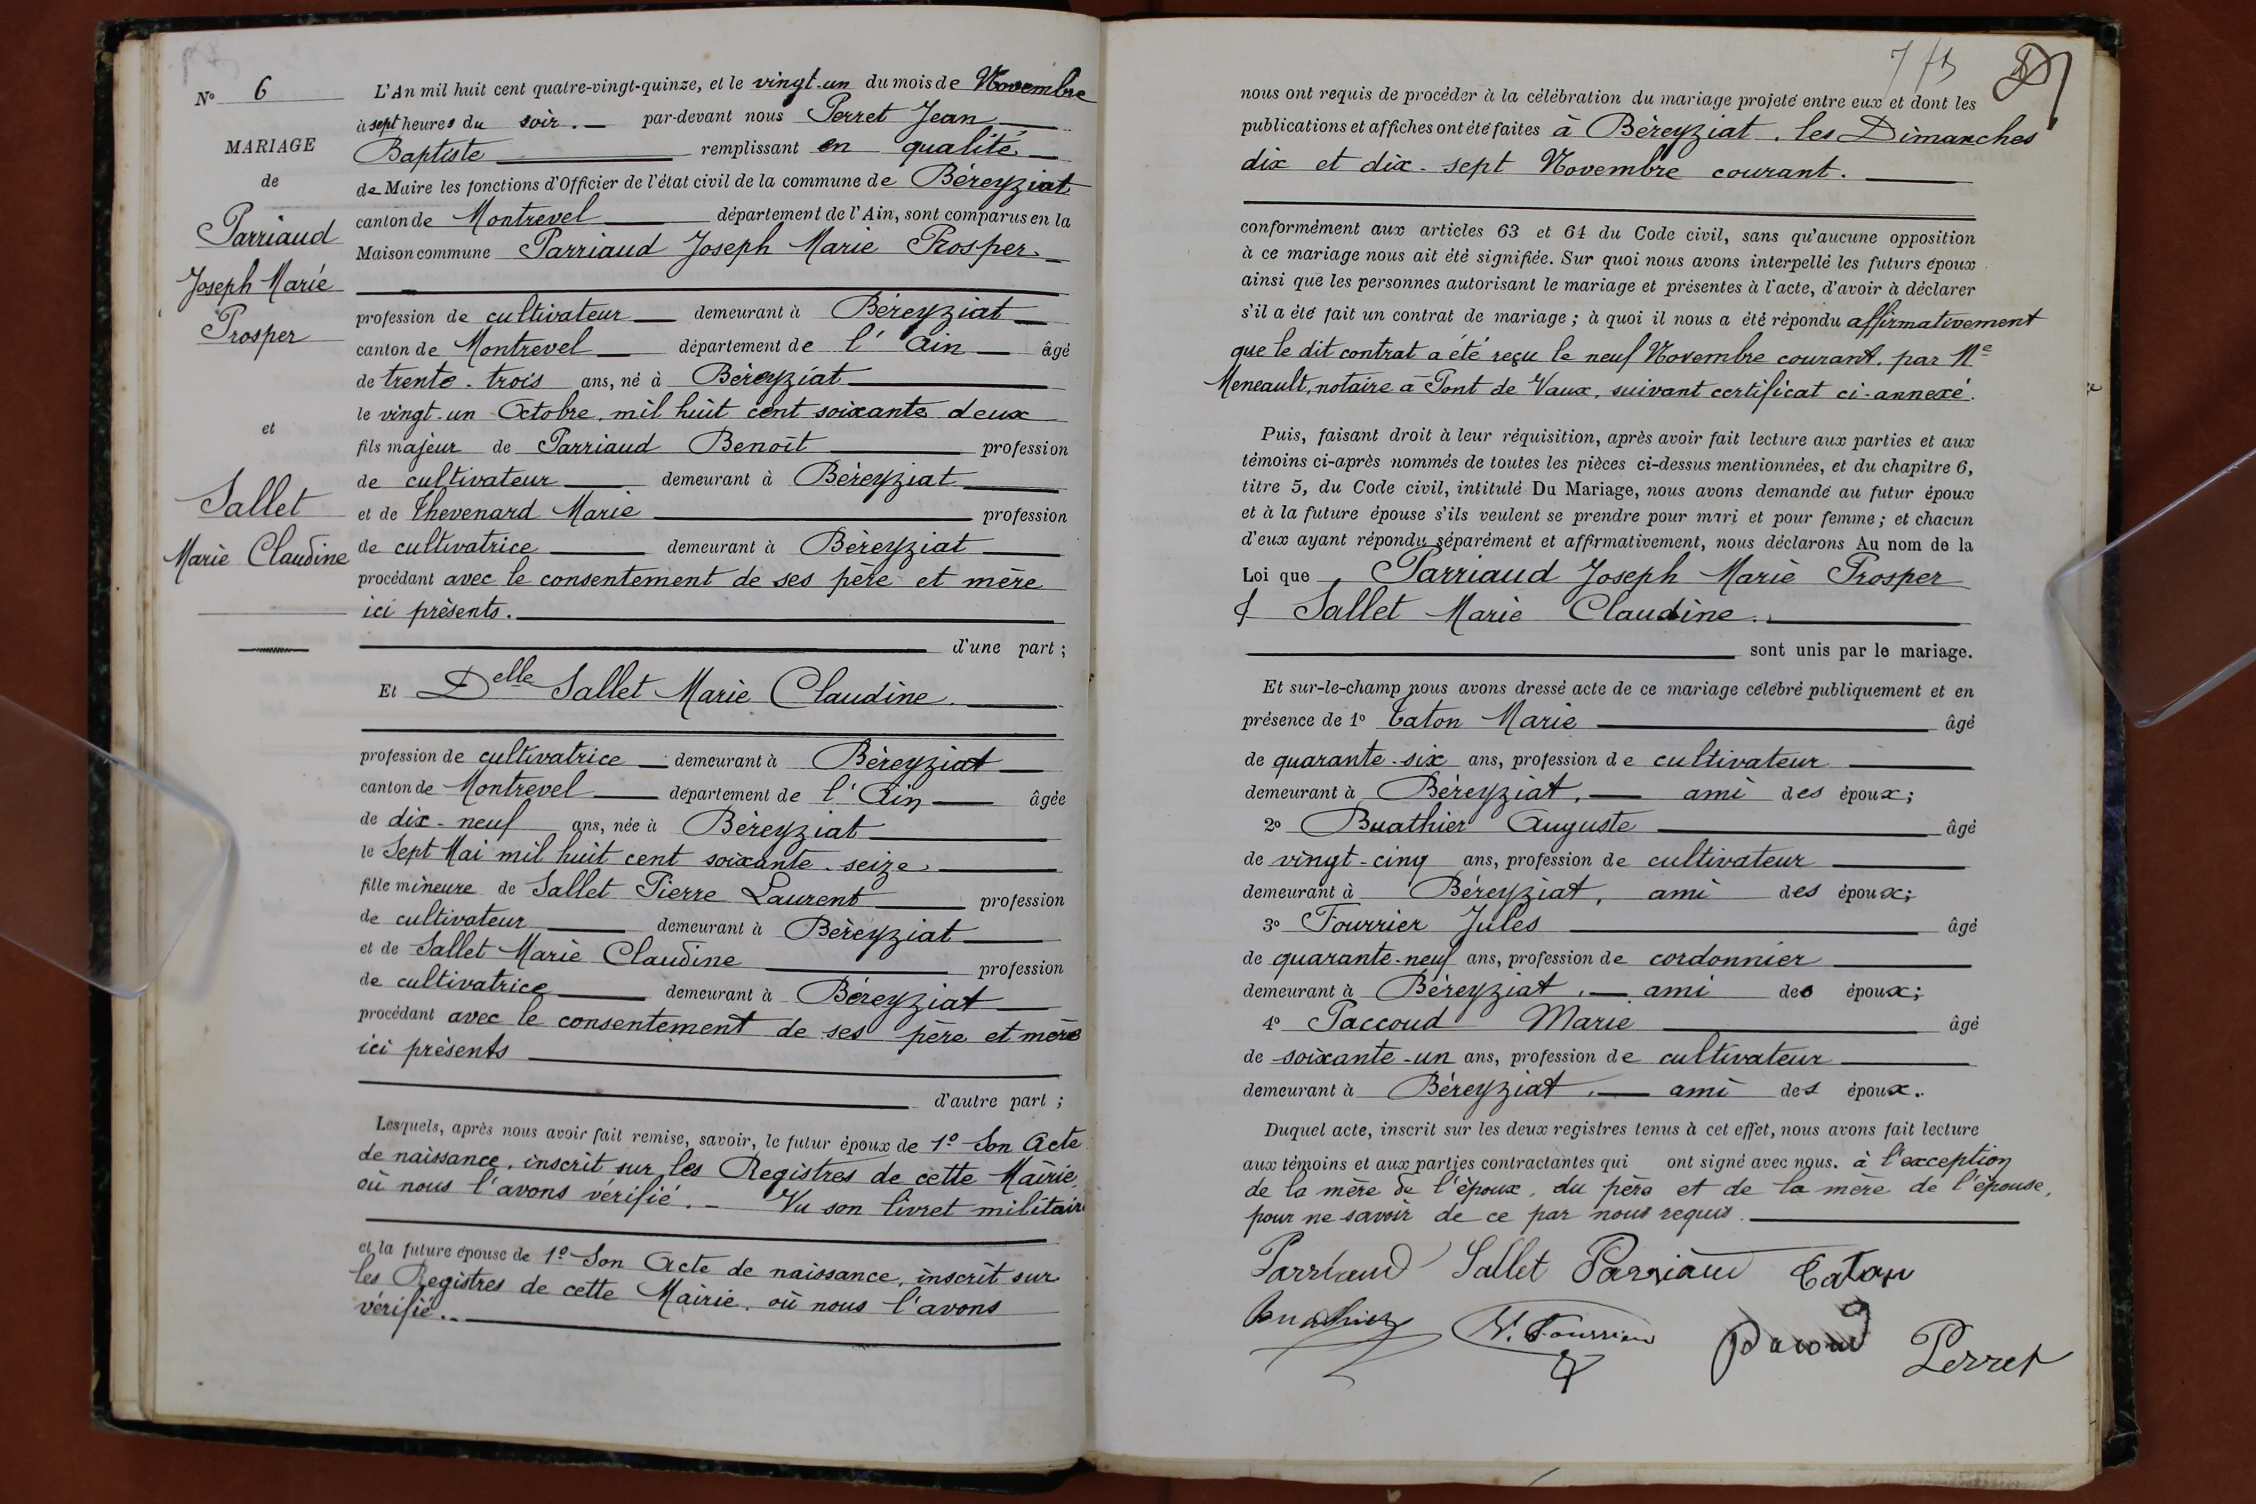 N° 6
MARIAGE
de
Parriaud
Joseph Marie
Prosper
et
Sallet
Marie Claudine
L'An mil huit cent quatre-vingt-quinze, et le vingt-un du mois de Novembre
à sept heures du soir. — par-devant nous Perret Jean
Baptiste remplissant en qualité
de Maire les fonctions d'Officier de l'état civil de la commune de Béreyziat
canton de Montrevel département de l'Ain, sont comparus en la
Maison commune Parriaud Joseph Marie Prosper
profession de cultivateur demeurant à Béreyziat
canton de Montrevel département de l'Ain âgé
de trente-trois ans, né à Béreyziat
le vingt-un Octobre, mil huit cent soixante deux
fils majeur de Parriaud Benoît profession
de cultivateur demeurant à Béreyziat
et de Thevenard Marie profession
de cultivatrice demeurant à Béreyziat
procédant avec le consentement de ses père et mère
ici présents.
d'une part ;
Et Delle Sallet Marie Claudine
profession de cultivatrice demeurant à Béreyziat
canton de Montrevel département de l'Ain âgée
de dix-neuf ans, née à Béreyziat
le Sept Mai mil huit cent soixante-seize
fille mineure de Sallet Pierre Laurent profession
de cultivateur demeurant à Béreyziat
et de Sallet Marie Claudine profession
de cultivatrice demeurant à Béreyziat
procédant avec le consentement de ses père et mère
ici présents
d'autre part ;
Lesquels, après nous avoir fait remise, savoir, le futur époux de 1° Son Acte
de naissance, inscrit sur les Registres de cette Mairie,
où nous l'avons vérifié. — Vu son livret militaire
et la future épouse de 1° Son Acte de naissance, inscrit sur
les Registres de cette Mairie, où nous l'avons
vérifié.
nous ont requis de procéder à la célébration du mariage projeté entre eux et dont les
publications et affiches ont été faites à Béreyziat, les Dimanches
dix et dix-sept Novembre courant.
conformément aux articles 63 et 64 du Code civil, sans qu'aucune opposition
à ce mariage nous ait été signifiée. Sur quoi nous avons interpellé les futurs époux
ainsi que les personnes autorisant le mariage et présentes à l'acte, d'avoir à déclarer
s'il a été fait un contrat de mariage ; à quoi il nous a été répondu affirmativement
que le dit contrat a été reçu le neuf Novembre courant, par Me
Meneault, notaire à Pont de Vaux, suivant certificat ci-annexé.
Puis, faisant droit à leur réquisition, après avoir fait lecture aux parties et aux
témoins ci-après nommés de toutes les pièces ci-dessus mentionnées, et du chapitre 6,
titre 5, du Code civil, intitulé Du Mariage, nous avons demandé au futur époux
et à la future épouse s'ils veulent se prendre pour mari et pour femme ; et chacun
d'eux ayant répondu séparément et affirmativement, nous déclarons Au nom de la
Loi que Parriaud Joseph Marie Prosper
& Sallet Marie Claudine.
sont unis par le mariage.
Et sur-le-champ nous avons dressé acte de ce mariage célébré publiquement et en
présence de 1° Caton Marie âgé
de quarante-six ans, profession de cultivateur
demeurant à Béreyziat, — ami des époux ;
2° Buathier Auguste âgé
de vingt-cinq ans, profession de cultivateur
demeurant à Béreyziat, ami des époux ;
3° Fourrier Jules âgé
de quarante-neuf ans, profession de cordonnier
demeurant à Béreyziat, — ami des époux ;
4° Paccoud Marie âgé
de soixante-un ans, profession de cultivateur
demeurant à Béreyziat, — ami des époux.
Duquel acte, inscrit sur les deux registres tenus à cet effet, nous avons fait lecture
aux témoins et aux parties contractantes qui ont signé avec nous. à l'exception
de la mère de l'époux, du père et de la mère de l'épouse,
pour ne savoir de ce par nous requis.
Parriaud Sallet Parriaud Caton
Buathier J. Fourrier Pacoud Perret